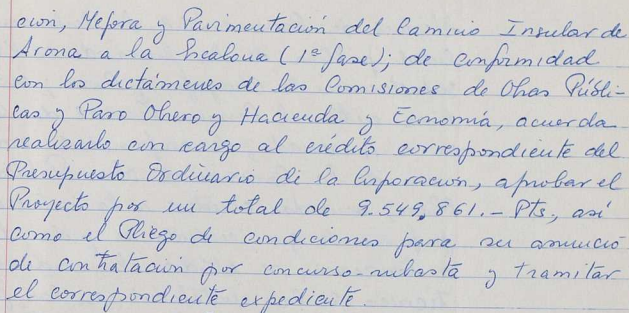 ción, Mejora y Pavimentación del Camino Insular de
Arona a la Escalona (1ª fase); de conformidad
con los dictámenes de las Comisiones de Obras Públi-
cas y Paro Obrero y Hacienda y Economía, acuerda
realizarlo con cargo al crédito correspondiente del
Presupuesto Ordinario de la Corporación, aprobar el
Proyecto por un total de 9.549,861.- Pts, así
como el Pliego de condiciones para su anuncio
de contratación por concurso-subasta y tramitar
el correspondiente expediente.